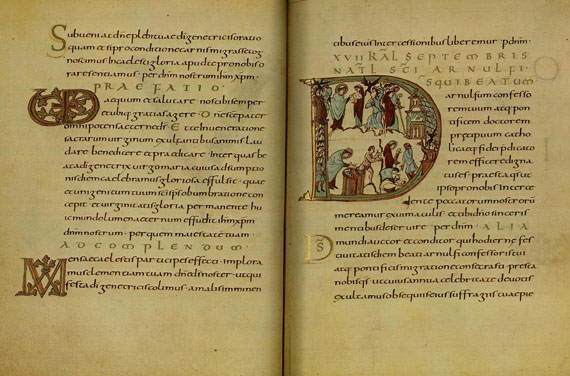 Subueniat dne plebi tuae di genetricis oratio
quam etsi pro conditione carnis migrasse cog
noscimus in caelesti gloria apud te pro nobis o
rare sentiamus. per dnm nostrum ihm xpm.
PRAEFATIO
aequum et salutare. nos tibi semper
et ubique gratias agere. Dne sce pater
omnipotens aeterne ds. Et te in ueneratione
sacrarum uirginum exultantibus animis lau
dare benedicere et praedicare. inter quas be
ata di genetrix uirgo maria cuius adsumptio
nis diem caelebramus gloriosa effulsit. quae
et unigenitum tuum sci sps obumbratione con
cepit et uirginitatis gloria permanente hu
ic mundo lumen aeternum effudit ihm xpm
dnm nostrum. per quem maiestatem tuam
AD COMPLENDUM
Mensae caelestis participes effecti. implora
mus clementiam tuam dne ds noster. ut qui
festa di genetricis colimus. a malis imminen
tibus eius intercessionibus liberemur. p dnm.
XVII KAL SEPTEMBRIS
NATL SCI ARNULFI
DS QUI BEATUM
arnulfum confesso
rem tuum atq pon
tificem doctorem
praecipuum catho
licae fidei pdicato
rem efficere digna
tus es. praesta qs ut
ipso pro nobis interce
dente peccatorum nostrorum
mereamur
mentibus deseruire. per dnm. ALIA
DS mundi auctor et conditor qui hodiernae fes
tiuitatis diem beati arnulfi confessoris tui
atq pontificis migratione consecrasti. praesta
nobis qs ut cuius annua celebritate deuotis
exultamus obsequiis eius suffragiis tuae pie